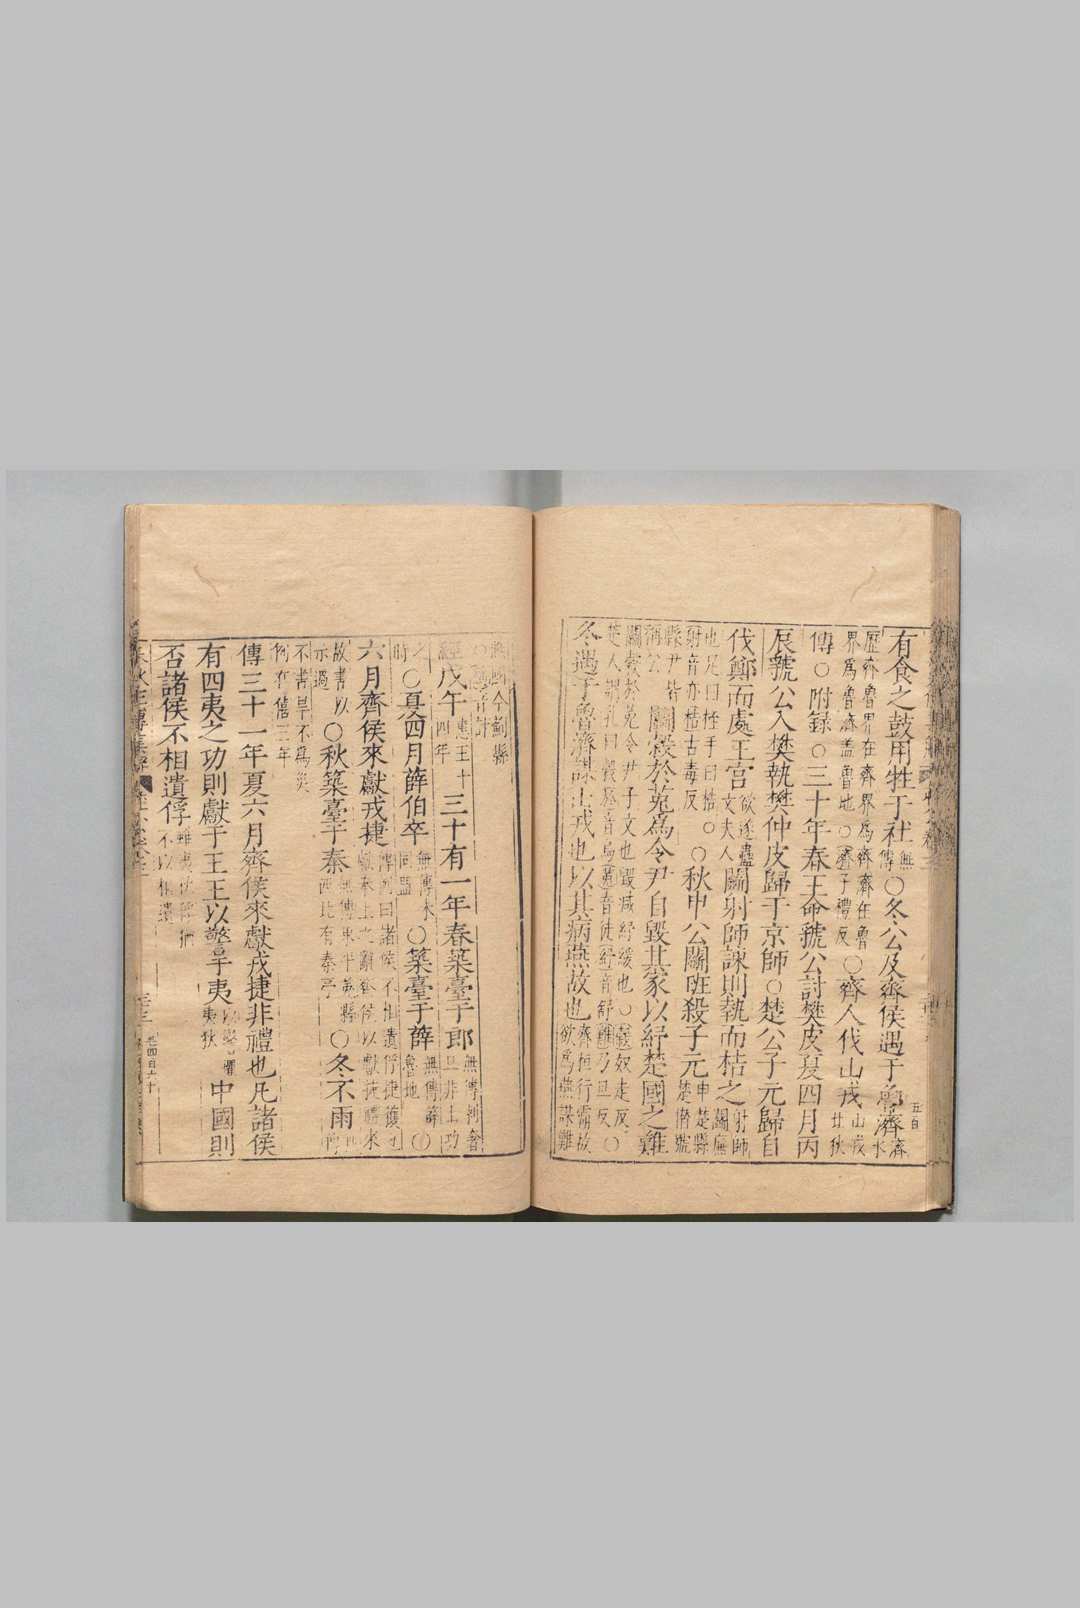 有食之鼓用牲于社無傳○冬公及齊侯遇于魯濟濟水
歷齊魯界在齊界爲齊濟在魯界爲魯濟蓋魯地○濟子禮反○齊人伐山戎山戎北狄
傳○附錄○三十年春王命虢公討樊皮夏四月丙
辰虢公入樊執樊仲皮歸于京師○楚公子元歸自
伐鄭而處王宮欲遂蠱文夫人鬬射師諫則執而梏之射師鬬廉
也足曰桎手曰梏○射音亦梏古毒反○秋申公鬬班殺子元申楚縣楚僭號
縣尹皆稱公鬬穀於菟爲令尹自毀其家以紓楚國之難
鬬穀於菟令尹子文也毀減紓緩也○穀奴走反○楚人謂乳曰穀於音烏菟音徒紓音舒難乃旦反○
冬遇于魯濟謀山戎也以其病燕故也齊桓行霸故欲爲燕謀難
燕國今薊縣
經戊午惠王十四年三十有一年春築臺于郎無傳
○夏四月薛伯卒無傳未同盟○築臺于薛無傳薛魯地○
六月齊侯來獻戎捷傳例曰諸侯不相遺俘捷獲也獻奉上之辭齊侯以獻捷禮來
故書以示過○秋築臺于秦無傳東平范縣西北有秦亭○冬不雨
不書旱不爲災例在僖三年
傳三十一年夏六月齊侯來獻戎捷非禮也凡諸侯
有四夷之功則獻于王王以警于夷中國則
否諸侯不相遺俘雖夷狄俘猶不以相遺